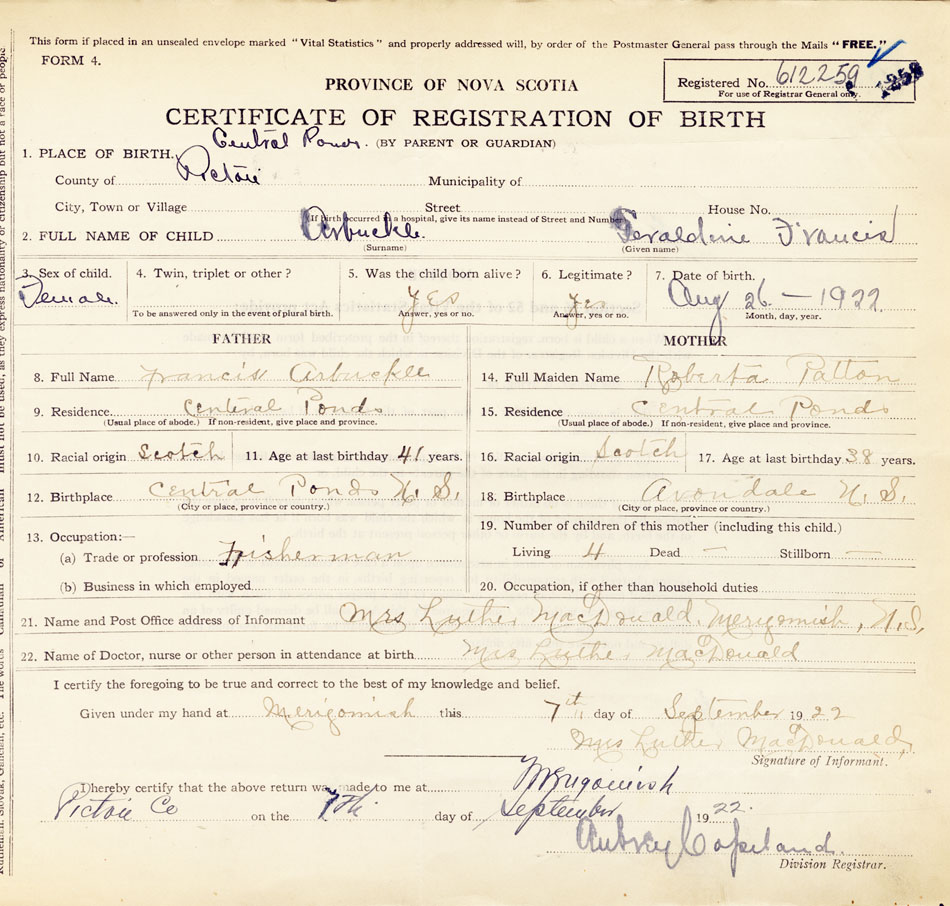 This form if placed in an unsealed envelope marked "Vital Statistics" and properly addressed will, by order of the Postmaster General pass through the Mails "FREE."
FORM 4.
Registered No. 612259
For use of Registrar General only.
PROVINCE OF NOVA SCOTIA
CERTIFICATE OF REGISTRATION OF BIRTH
(BY PARENT OR GUARDIAN)
1. PLACE OF BIRTH. Central Ponds.
County of Pictou Municipality of
City, Town or Village Street House No.
(If birth occurred in a hospital, give its name instead of Street and Number)
2. FULL NAME OF CHILD Arbuckle. Geraldine Francis
(Surname) (Given name)
3. Sex of child. Female.
4. Twin, triplet or other?
To be answered only in the event of plural birth.
5. Was the child born alive? Yes
Answer, yes or no.
6. Legitimate? Yes
Answer, yes or no.
7. Date of birth. Aug 26 - 1922.
Month, day, year.
FATHER
8. Full Name Francis Arbuckle
9. Residence Central Ponds
(Usual place of abode.) If non-resident, give place and province.
10. Racial origin Scotch 11. Age at last birthday 41 years.
12. Birthplace Central Ponds N. S.
(City or place, province or country.)
13. Occupation:—
(a) Trade or profession Fisherman
(b) Business in which employed
MOTHER
14. Full Maiden Name Roberta Patton
15. Residence Central Ponds
(Usual place of abode.) If non-resident, give place and province.
16. Racial origin Scotch 17. Age at last birthday 38 years.
18. Birthplace Avondale N. S.
(City or place, province or country.)
19. Number of children of this mother (including this child.)
Living 4 Dead — Stillborn —
20. Occupation, if other than household duties
21. Name and Post Office address of Informant Mrs Luther MacDonald, Merigomish, N.S.
22. Name of Doctor, nurse or other person in attendance at birth Mrs Luther MacDonald
I certify the foregoing to be true and correct to the best of my knowledge and belief.
Given under my hand at Merigomish this 7th day of September 1922
Mrs Luther MacDonald,
Signature of Informant.
I hereby certify that the above return was made to me at Merigomish
Pictou Co on the 7th day of September 1922.
Aubrey Copeland.
Division Registrar.